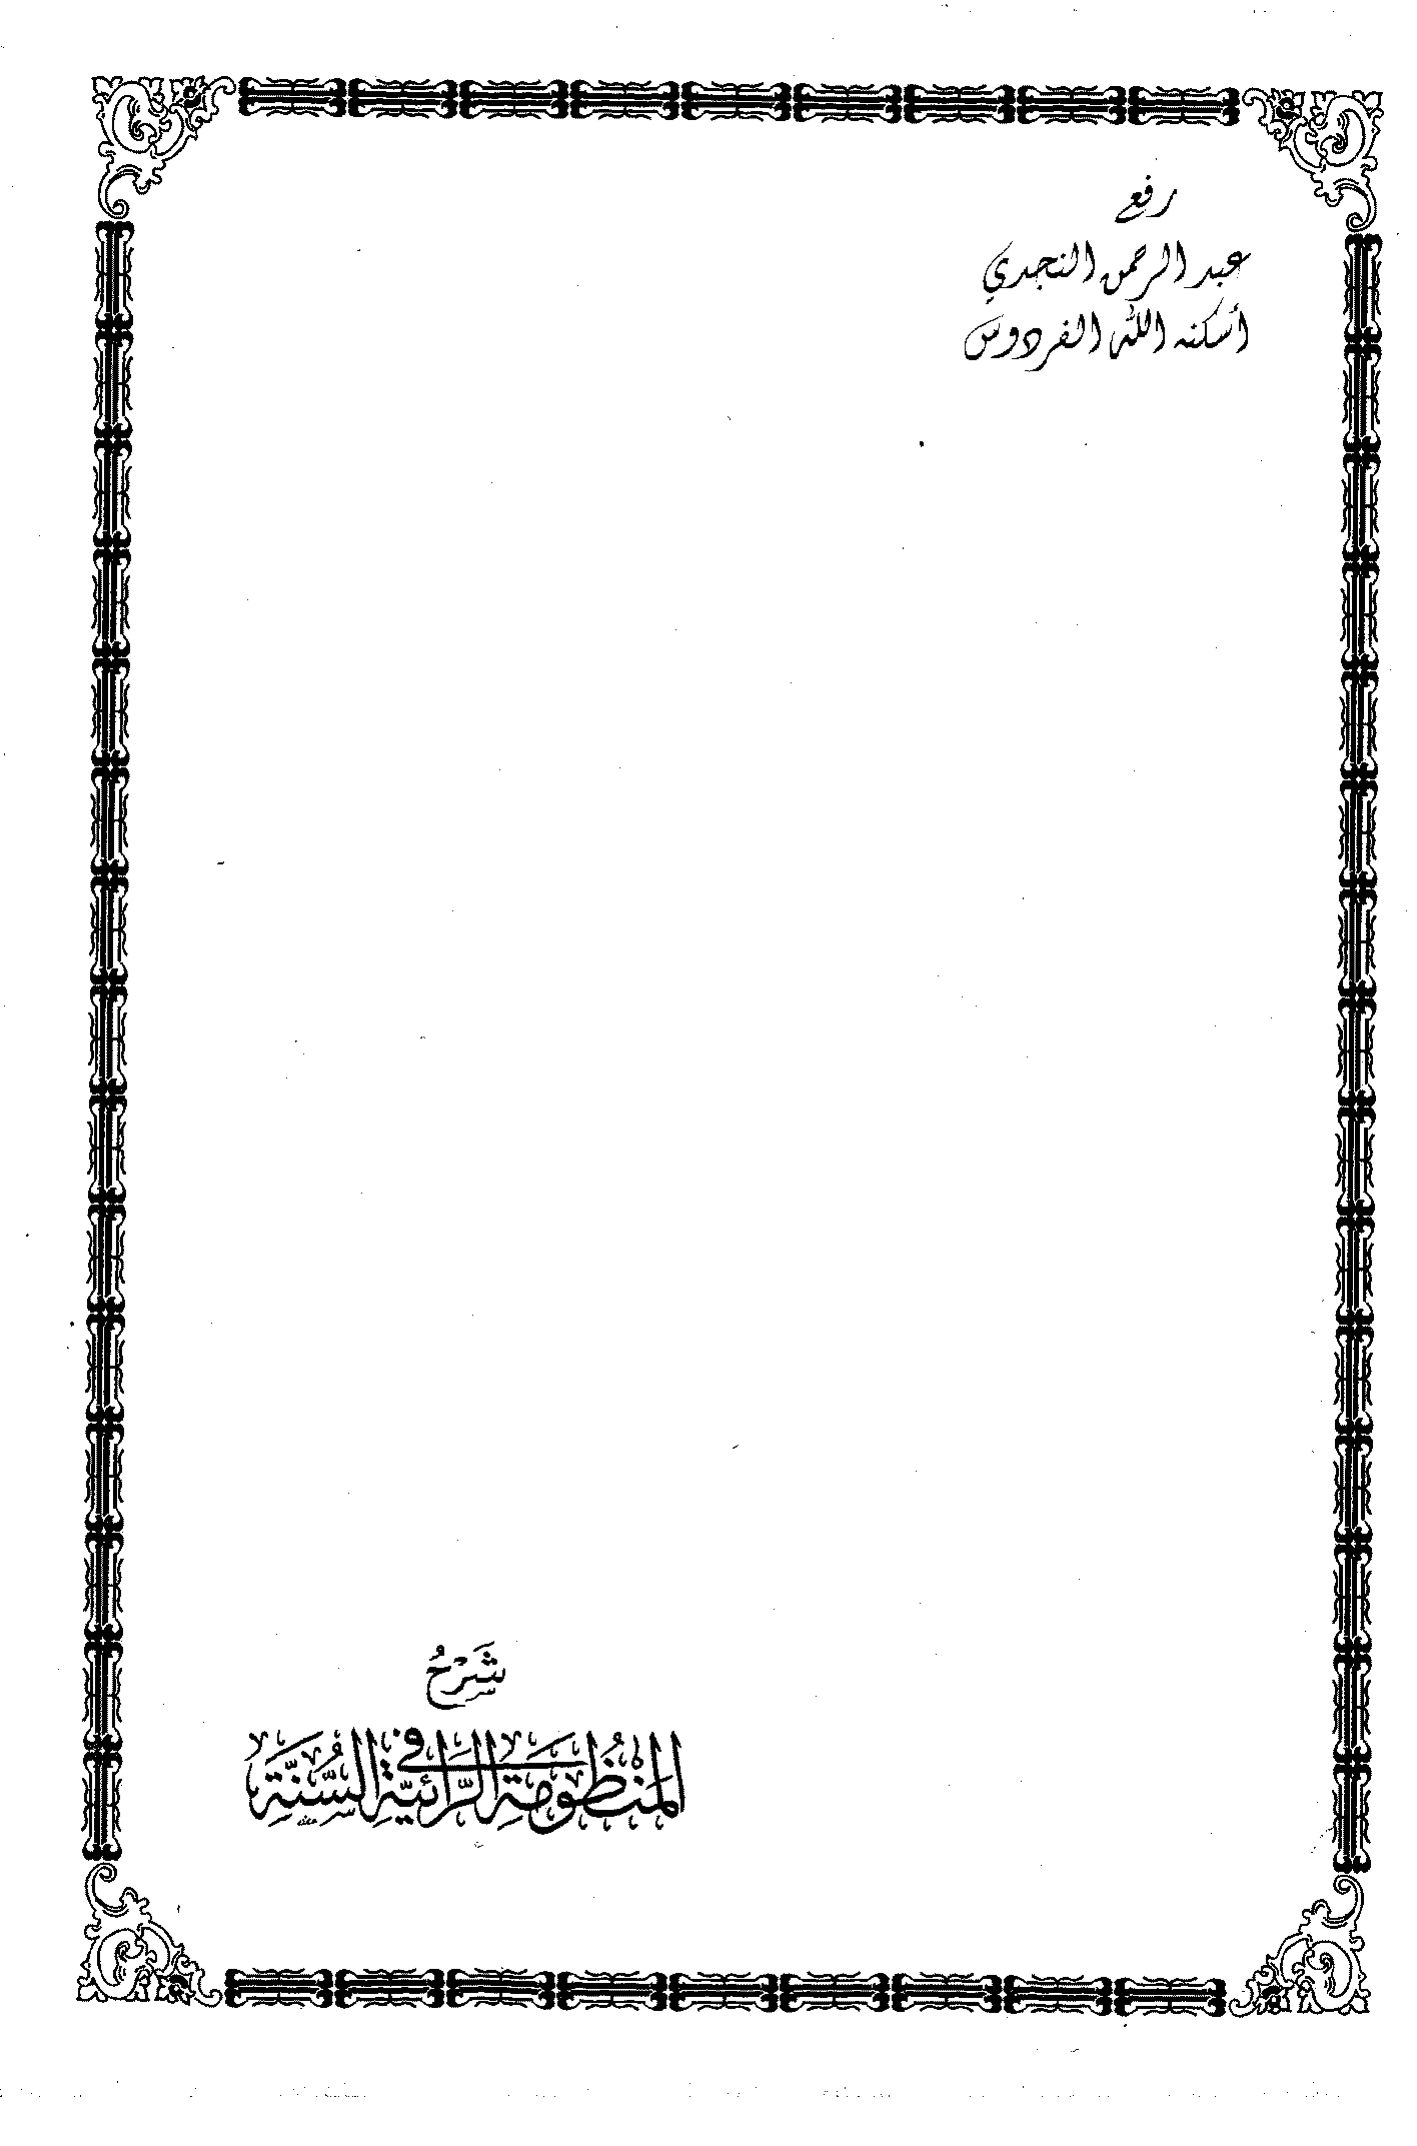 رفع
عبد الرحمن النجدي
أسكنه الله الفردوس
شَرْحُ
المَنْظُومَةِ الرَّائِيَّةِ فِي السُّنَّةِ